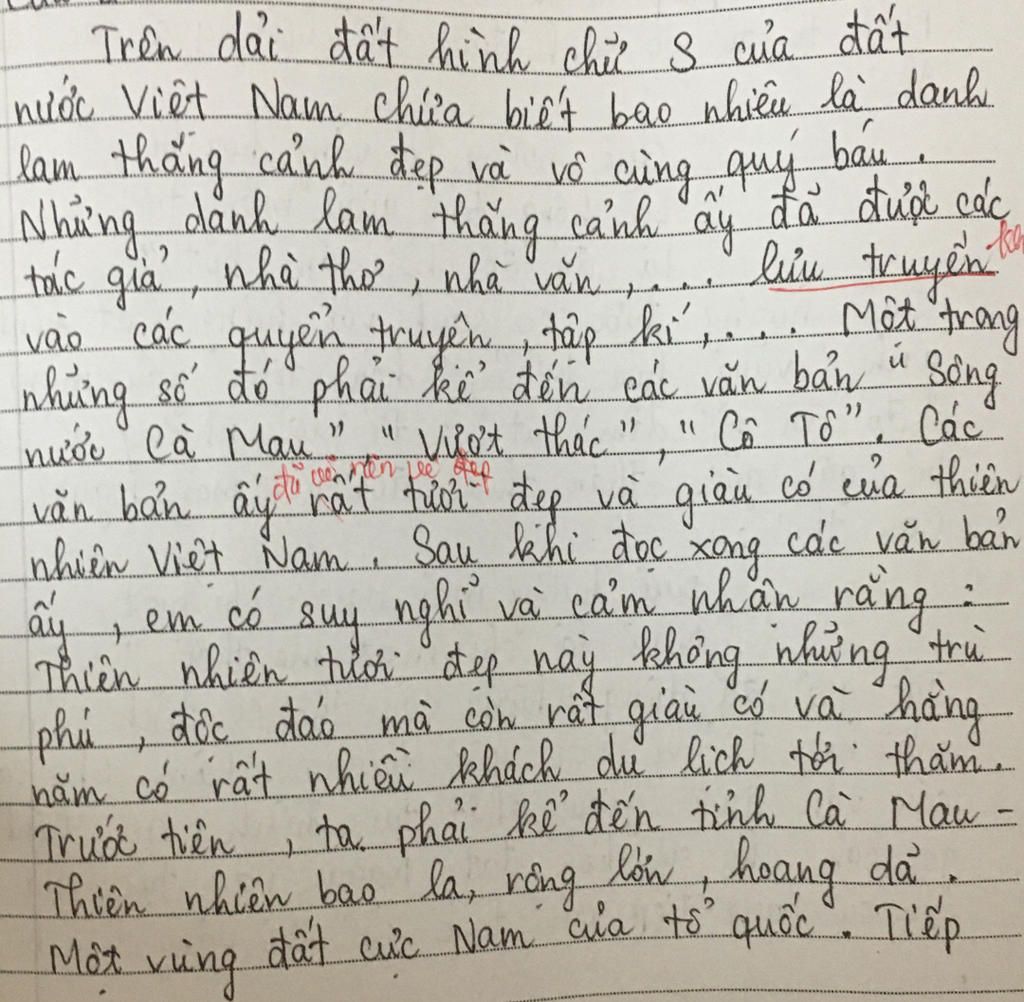 Trên dải đất hình chữ S của đất
nước Việt Nam chứa biết bao nhiêu là danh
lam thắng cảnh đẹp và vô cùng quý báu.
Những danh lam thắng cảnh ấy đã được các
tác giả, nhà thơ, nhà văn, .... lưu truyền
vào các quyển truyện, tập kí, .... Một trong
những số đó phải kể đến các văn bản "Sông
nước Cà Mau" "Vượt thác", "Cô Tô". Các
văn bản ấy rất tươi đẹp và giàu có của thiên
nhiên Việt Nam. Sau khi đọc xong các văn bản
ấy, em có suy nghĩ và cảm nhận rằng:
Thiên nhiên tươi đẹp này không những trù
phú, độc đáo mà còn rất giàu có và hằng
năm có rất nhiều khách du lịch tới thăm.
Trước tiên, ta phải kể đến tỉnh Cà Mau -
Thiên nhiên bao la, rộng lớn, hoang dã.
Một vùng đất cực Nam của tổ quốc. Tiếp